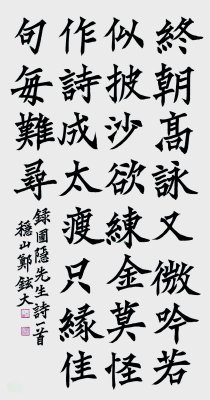 終朝高詠又微吟若
似披沙欲練金莫怪
作詩成太瘦只緣佳
句每難尋
錄圃隱先生詩一首
穩山鄭鉉大